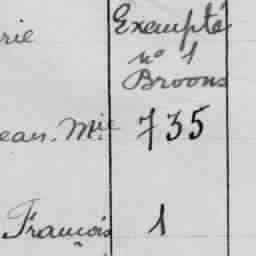 rie Exempté
n° 1
Broons
ean-Mie 735
François 1